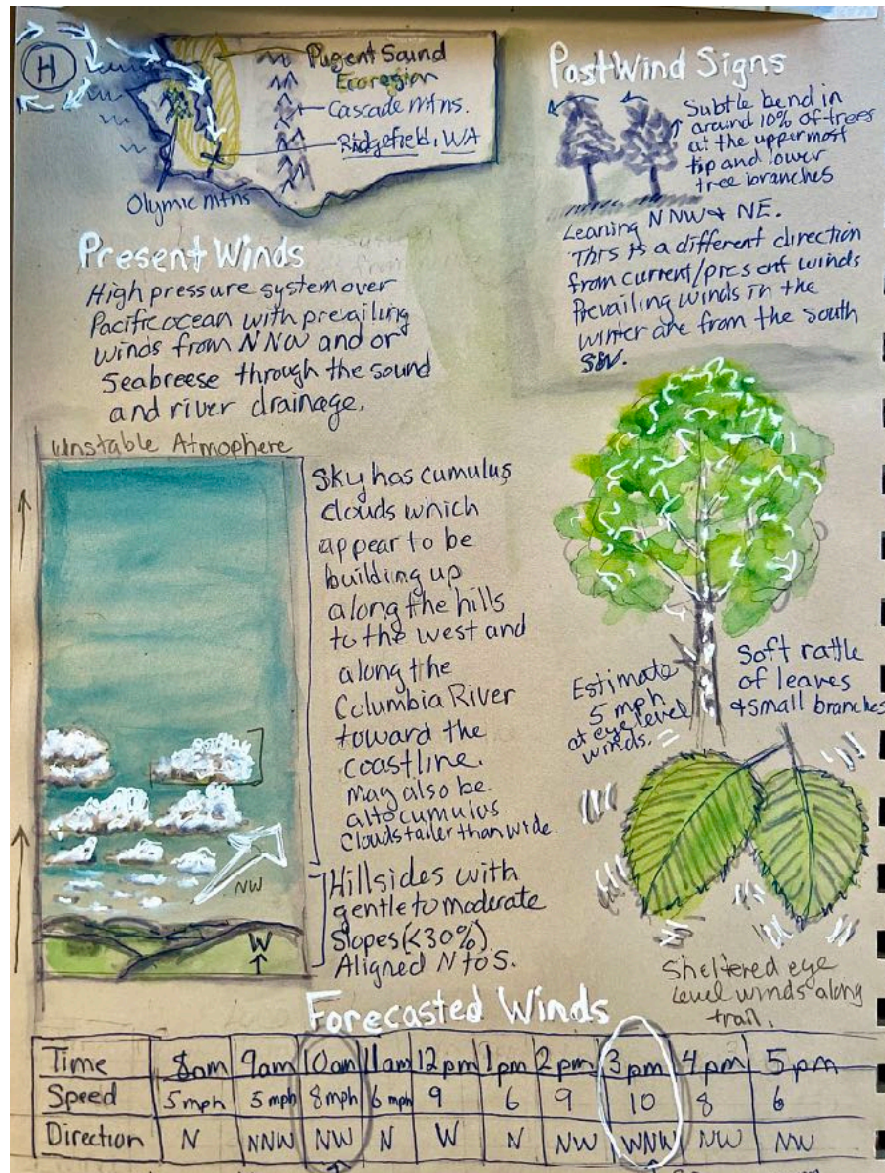 H
Pugent Sound
Ecoregion
Cascade mtns.
Ridgefield, WA
Olymic mtns
Past Wind Signs
Subtle bend in
around 10% of trees
at the uppermost
tip and lower
tree branches
Leaning NNW & NE.
This is a different direction
from current/present winds
Prevailing winds in the
winter are from the south
SSW.
Present Winds
High pressure system over
Pacific ocean with prevailing
winds from NNW and or
Seabreese through the sound
and river drainage.
Unstable Atmophere
Sky has cumulus
clouds which
appear to be
building up
along the hills
to the west and
along the
Columbia River
toward the
coastline.
may also be
altocumulus
Clouds taller than wide
NW
W
Hillsides with
gentle to moderate
Slopes (<30%)
Aligned N to S.
Estimate
5 mph
at eye level
winds.
Soft rattle
of leaves
+ small branches
Sheltered eye
level winds along
trail.
Forecasted Winds
Time 8am 9am 10am 11am 12pm 1pm 2pm 3pm 4pm 5pm
Speed 5mph 5mph 8mph 6mph 9 6 9 10 8 6
Direction N NNW NW N W N NW WNW NW NW